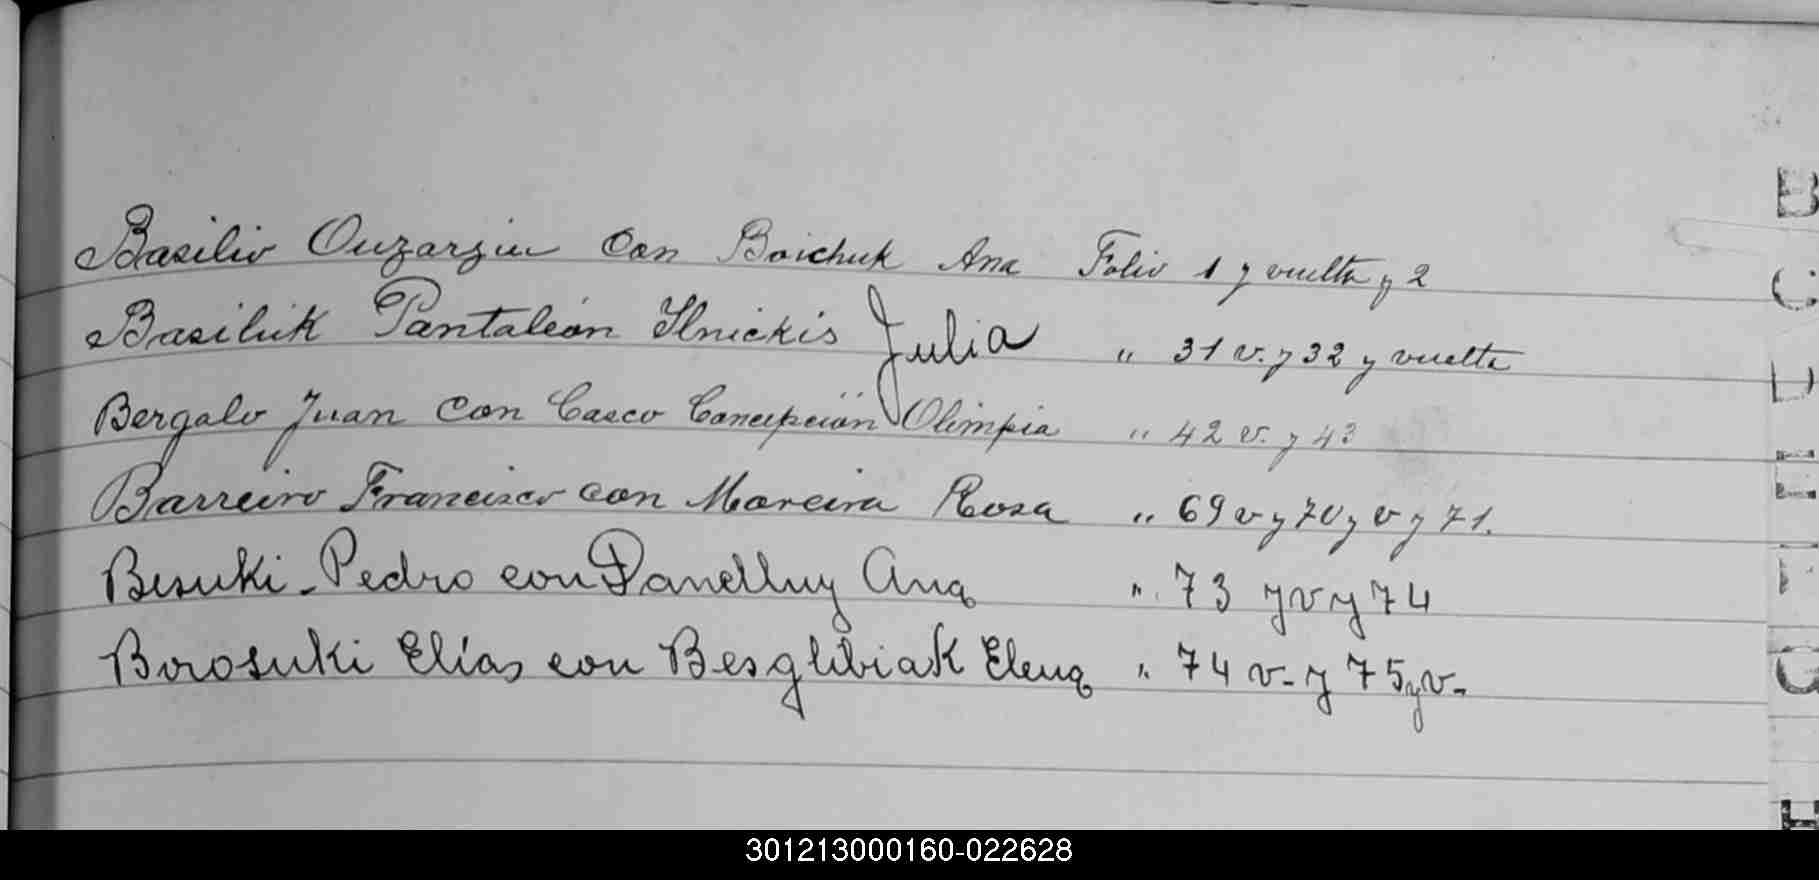 Basilio Ouzarziu con Boichuk Ana Folio 1 y vuelta y 2
Basiliuk Pantaleón Ilnickis Julia " 31 v. y 32 y vuelta
Bergalo Juan con Casco Concepción Olimpia " 42 v. y 43
Barreiro Francisco con Moreira Rosa " 69 v y 70 y v y 71.
Besuki - Pedro con Danelluy Ana " 73 y v y 74
Borosuki Elías con Besglibiak Elena " 74 v - y 75 y v -
B
C
D
E
F
G
H
301213000160-022628